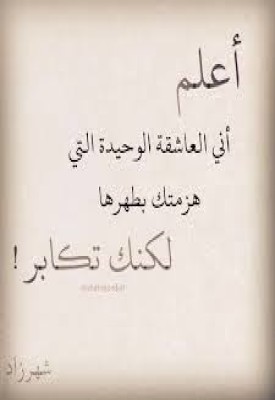 أعلم
أني العاشقة الوحيدة التي
هزمتك بطهرها
لكنك تكابر !
شهرزاد